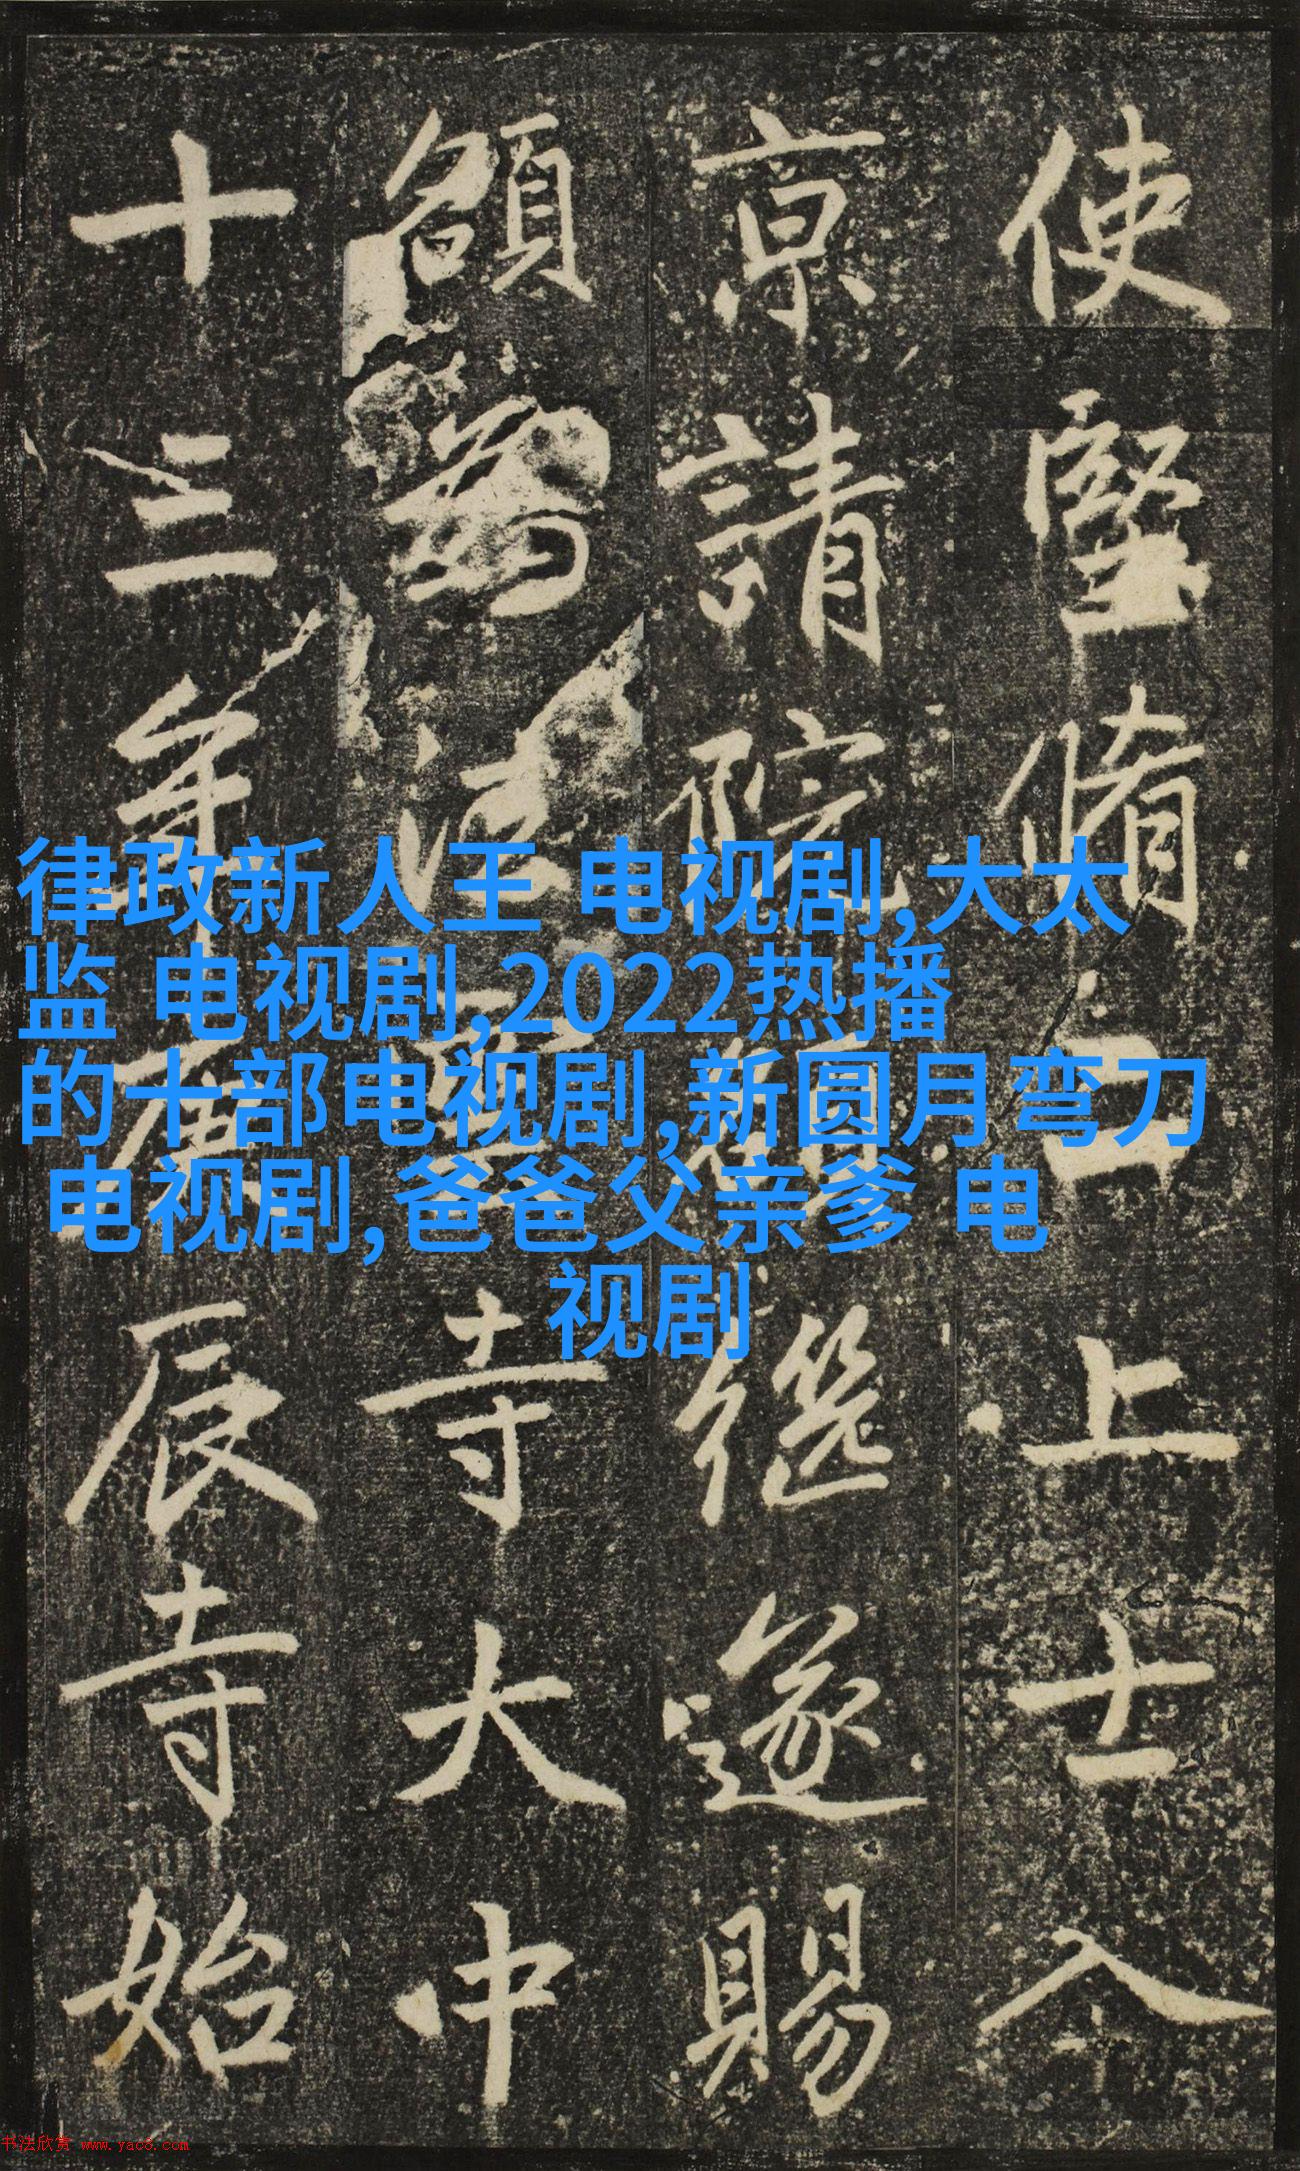 使堅上士入
京請院繼遂賜
額為法寺大中
十三年辰寺始
律政新人王 电视剧,大太
监 电视剧,2022热播
的十部电视剧,新圆月弯刀
电视剧,爸爸父亲爹 电
视剧
书法欣赏 www.yac8.com